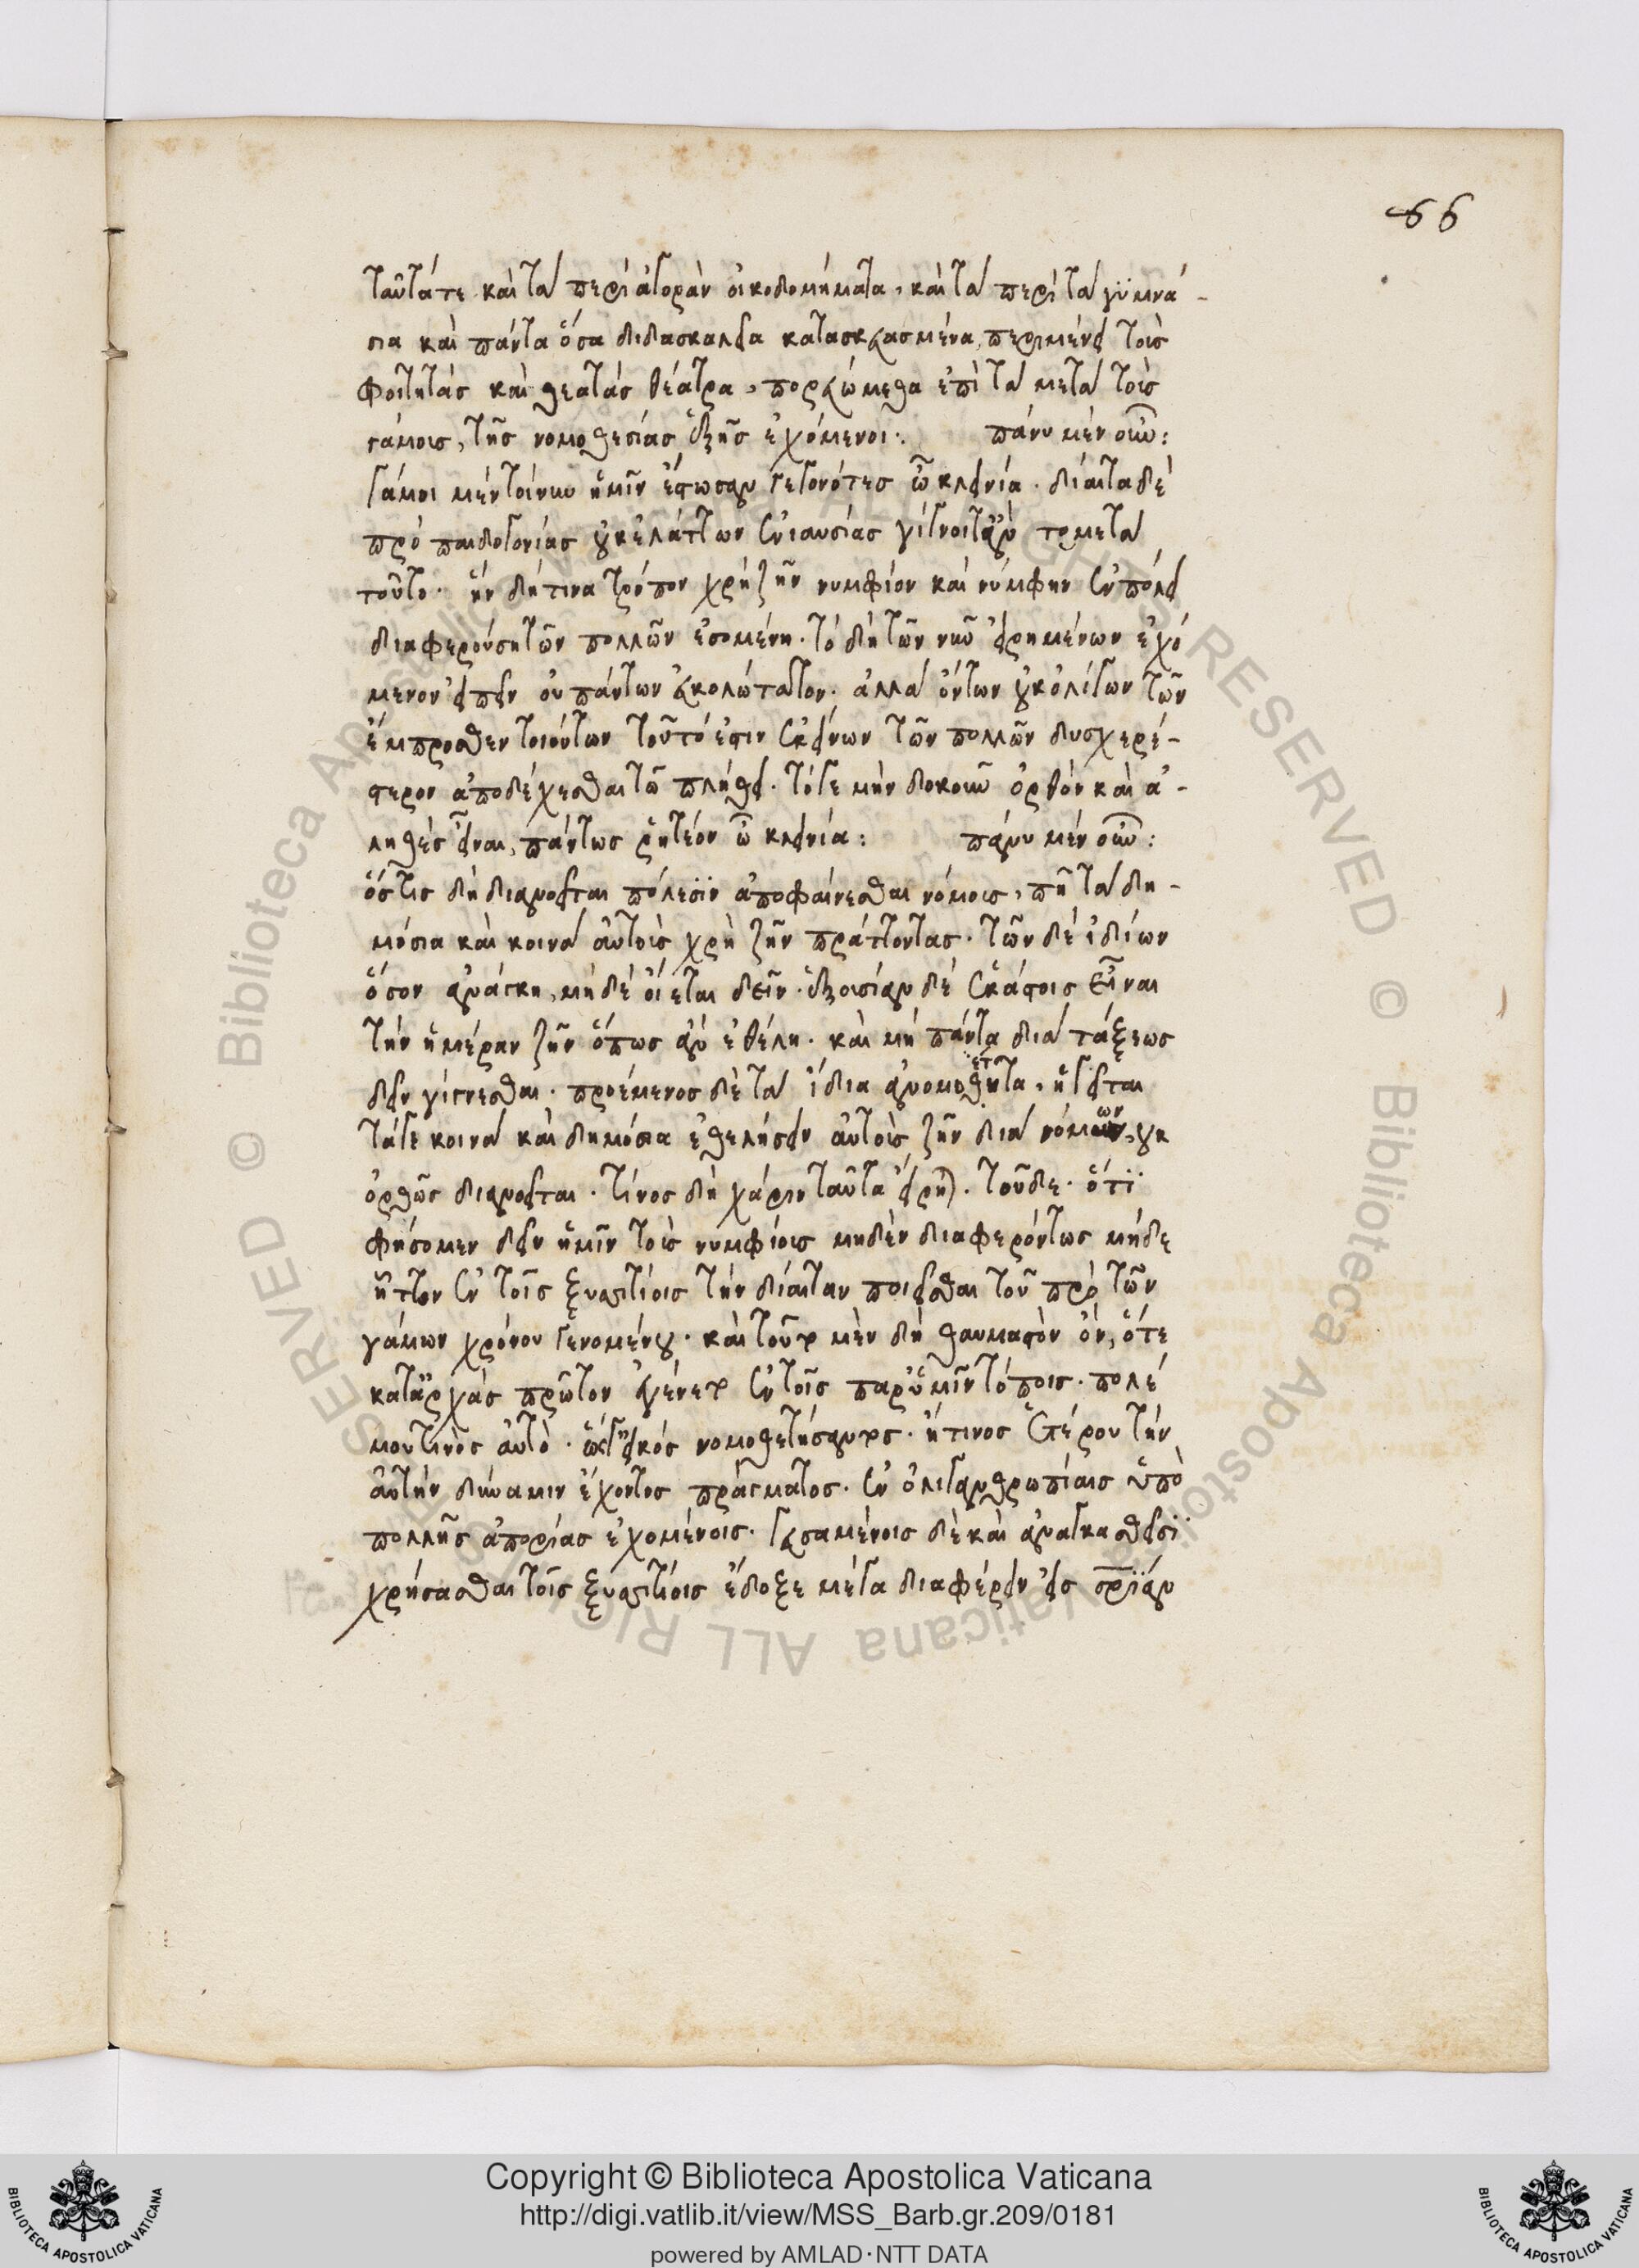 66
ταῦτά τε καὶ τὰ περὶ ἀγορὰν οἰκοδομήματα, καὶ τὰ περὶ τὰ γυμνά-
σια καὶ πάντα ὅσα διδασκαλεῖα κατασκευασμένα, περιμένει τοὺς
φοιτητὰς καὶ θεατὰς θέατρα, πορευώμεθα ἐπὶ τὰ μετὰ τοὺς
γάμους, τῆς νομοθεσίας ἑξῆς ἐχόμενοι. πάνυ μὲν οὖν:
γάμοι μὲν τοίνυν ἡμῖν ἔστωσαν γεγονότες ὦ κλεινία. δίαιτα δὲ
πρὸ παιδογονίας οὐκ ἐλάττων ἐνιαυσίας γίγνοιτ' ἂν τὸ μετὰ
τοῦτο. ἣν δή τινα τρόπον χρὴ ζῆν νυμφίον καὶ νύμφην ἐν πόλει
διαφερούσῃ τῶν πολλῶν ἐσομένῃ. τὸ δὴ τῶν νῦν εἰρημένων ἐχό
μενον εἰπεῖν οὐ πάντων εὐκολώτατον. ἀλλὰ ὄντων οὐκ ὀλίγων τῶν
ἔμπροσθεν τοιούτων τοῦτό ἐστιν ἐκείνων τῶν πολλῶν δυσχερέ-
στερον ἀποδέχεσθαι τῷ πλήθει. τό γε μὴν δοκοῦν ὀρθὸν καὶ ἀ-
ληθὲς εἶναι, πάντως ῥητέον ὦ κλεινία: πάνυ μὲν οὖν:
ὅστις δὴ διανοεῖται πόλεσϊν ἀποφαίνεσθαι νόμους, πῆ τὰ δη-
μόσια καὶ κοινὰ αὐτοὺς χρὴ ζῆν πράττοντας. τῶν δὲ ἰδίων
ὅσον ἀνάγκη, μηδὲ οἴεται δεῖν. ἐξουσίαν δὲ ἑκάστοις εἶναι
τὴν ἡμέραν ζῆν ὅπως ἂν ἐθέλῃ. καὶ μὴ πάντα διὰ τάξεως
δεῖν γίγνεσθαι. προέμενος δὲ τὰ ἴδια ἀνομοθέτητα, ἡγεῖται
τά γε κοινὰ καὶ δημόσια ἐθελήσειν αὐτοὺς ζῆν διὰ νόμων, οὐκ
ὀρθῶς διανοεῖται. τίνος δὴ χάριν ταῦτα εἴρηται. τοῦδε. ὅτϊ
φήσομεν δεῖν ἡμῖν τοὺς νυμφίους μηδὲν διαφερόντως μήδε
ἧττον ἐν τοῖς ξυσσιτίοις τὴν δίαιταν ποιεῖσθαι τοῦ πρὸ τῶν
γάμων χρόνου γενομένου. καὶ τοῦτο μὲν δὴ θαυμαστὸν ὄν, ὅτε
κατ' ἀρχὰς πρῶτον ἐγένετο ἐν τοῖς παρ' ὑμῖν τόποις. πολέ
μου τινὸς αὐτὸ. ὥς γ' εἰκός νομοθετήσαντος. ἤ τινος ἑτέρου τὴν
αὐτὴν δύναμιν ἔχοντος πράγματος. ἐν ὀλιγανθρωπίαις ὑπὸ
πολλῆς ἀπορίας ἐχομένοις. γευσαμένοις δὲ καὶ ἀναγκασθεῖσϊ
χρήσασθαι τοῖς ξυσσιτίοις ἔδοξε μέγα διαφέρειν εἰς σωτηρίαν
Copyright © Biblioteca Apostolica Vaticana
http://digi.vatlib.it/view/MSS_Barb.gr.209/0181
powered by AMLAD·NTT DATA